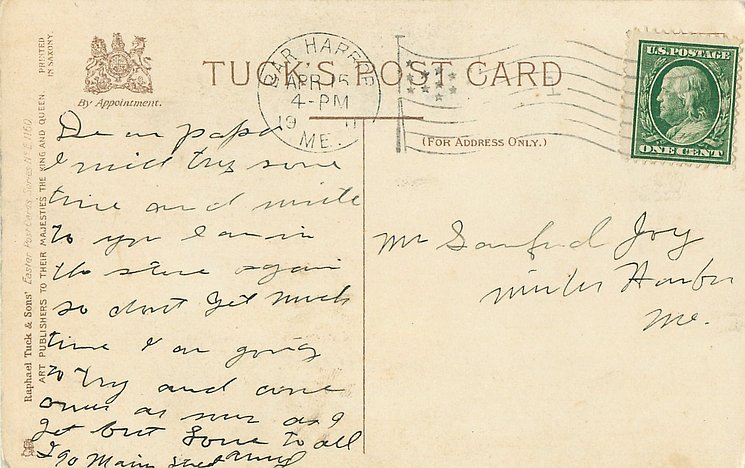 TUCK'S POST CARD
By Appointment.
(FOR ADDRESS ONLY.)
BAR HARBOR
APR 15
4-PM
19 11
ME.
U.S. POSTAGE
ONE CENT
PRINTED
IN SAXONY.
Raphael Tuck & Sons' Easter Post Cards, Series No. E. 1160.
ART PUBLISHERS TO THEIR MAJESTIES THE KING AND QUEEN.
Dear papa
I mid try some
time and write
to you I am in
the store again
so dont get much
time I am going
to try and come
over as soon as I
get but love to all
90 Main Street
Mr Sanford Joy
Winter Harbor
Me.